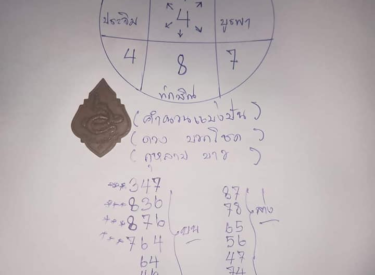 4
ประจิม บูรพา
4 8 7
ทักษิณ
(คำนวณแม่งปืน)
(ดวง บอกโชค)
(กุหลาบ นาย)
***347
***836
***876
***764
64
87
78
65
56
47
74
บน
ล่าง